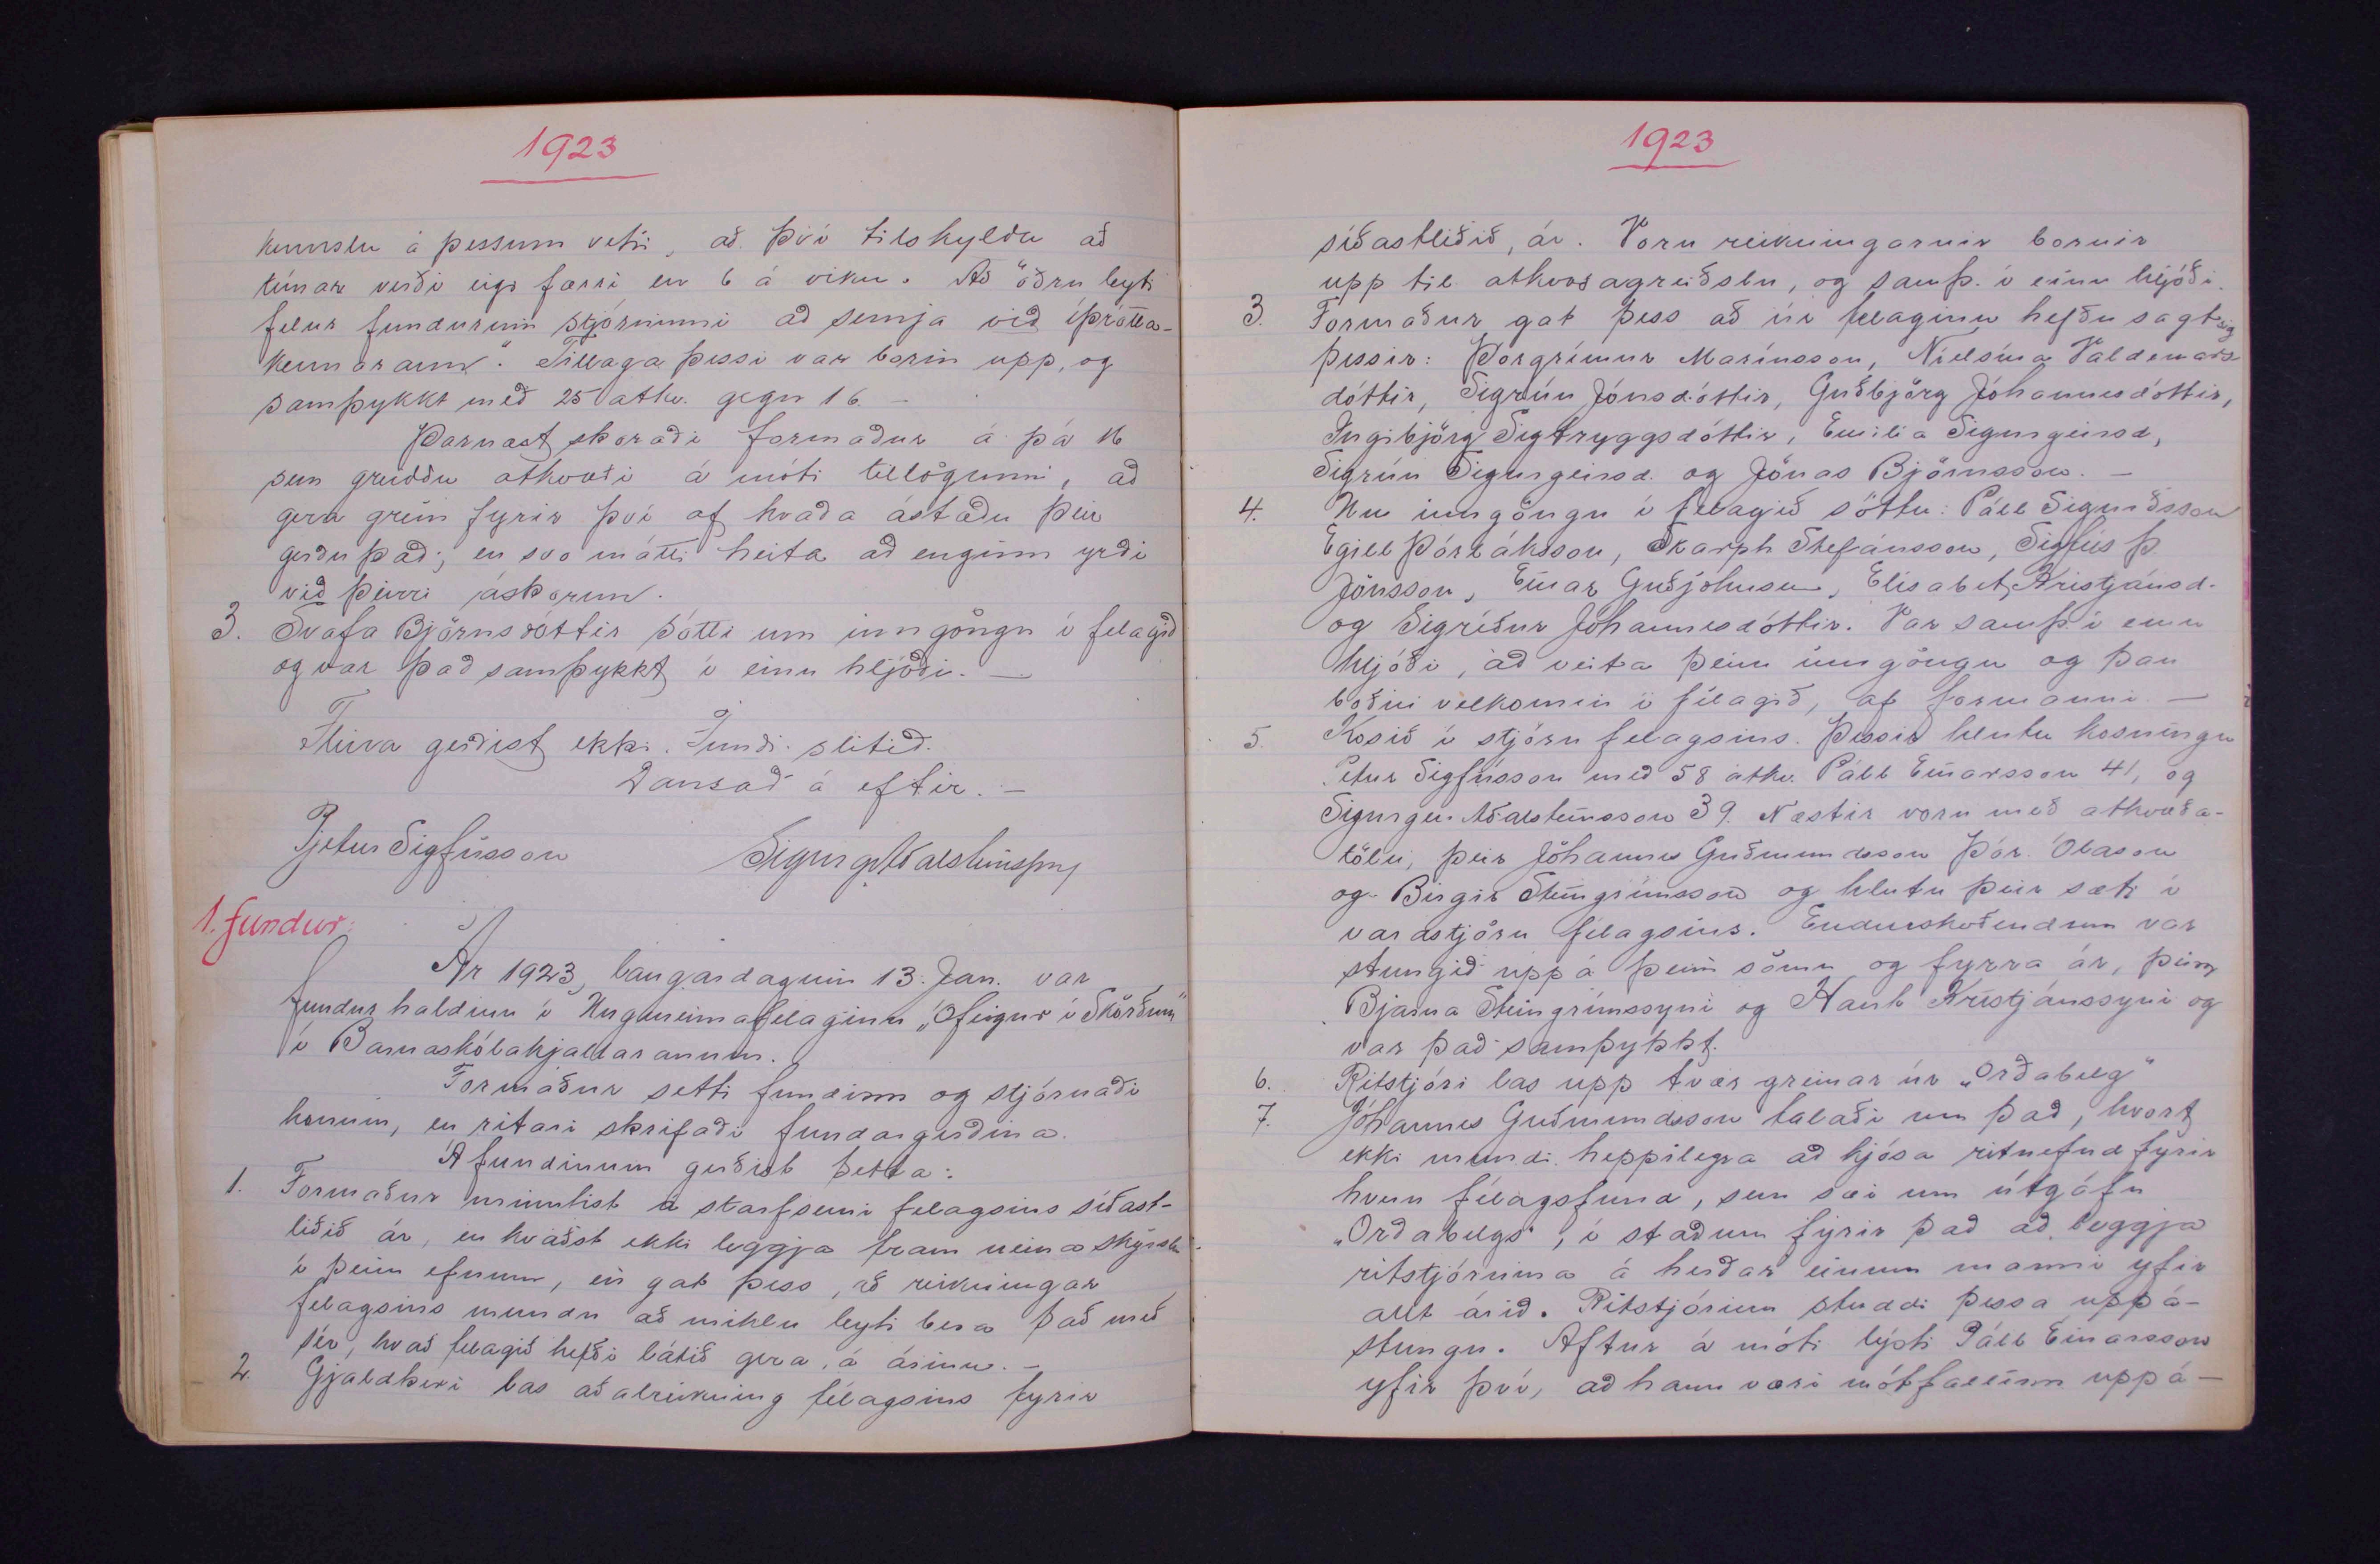 1923
kennslu á þessum vetri, að því tilskyldu að
tímar verði eigi færri en 6 á viku. Að öðru leyti
felur fundurinn stjórninni að semja við íþrótta-
kennarann." Tillaga þessi var borin upp, og
samþykkt með 25 atkv. gegn 16 -
Þarnæst skoraði formaður á þá 16
sem greiddu atkvæði á móti tillögunni, að
gera grein fyrir því af hvaða ástæðu þeir
gerðu það; en svo mátti heita að enginn yrði
við þeirri áskorun.
3. Svafa Björnsdóttir sótti um inngöngu í felagið
og var það samþykkt í einu hljóði. —
Fleira gerðist ekki. Fundi slitið.
Dansað á eftir. -
Pjetur Sigfússon Sigurg. Aðalsteinsson
1. fundur:
Ár 1923, laugardaginn 13. Jan. var
fundur haldinn í Ungmennafelaginu „Ófeigur í Skörðum"
í Barnaskólakjallaranum.
Formaður setti fundinn og stjórnaði
honum, en ritari skrifaði fundargerðina.
Á fundinum gerðist þetta:
1. Formaður minntist á starfsemi felagsins síðast-
liðið ár, en kvaðst ekki leggja fram neina skýrslu
í þeim efnum, en gat þess, að reikningar
felagsins mundu að miklu leyti bera það með
sér, hvað felagið hefði látið gera, á árinu. -
2. Gjaldkeri las aðalreikning félagsins fyrir
1923
síðastliðið, ár. Voru reikningarnir bornir
upp til atkvæðagreiðslu, og samþ. í einu hljóði.
3. Formaður gat þess að úr felaginu hefðu sagt sig
þessir: Þorgrímur Marínsson, Níelsína Valdemars
dóttir, Sigrún Jónsdóttir, Guðbjörg Jóhannesdóttir,
Ingibjörg Sigtryggsdóttir, Emilia Sigurgeirsd,
Sigrún Sigurgeirsd. og Jónas Björnsson. —
4. Um inngöngu í felagið sóttu: Páll Sigurðsson
Egill Þórláksson, Skarph Stefánsson, Sigfús Þ.
Jónsson, Einar Guðjohnsen, Elísabet Kristjánsd.
og Sigríður Jóhannesdóttir. Var samþ. í einu
hljóði, að veita þeim inngöngu og þau
boðin velkomin í félagið, af formanni —
5. Kosið í stjórn felagsins. Þessir hlutu kosningu
Petur Sigfússon með 58 atkv. Páll Einarsson 41, og
Sigurgeir Aðalsteinsson 39. Næstir voru með atkvæða-
tölu, þeir Jóhannes Guðmundsson Þór. Ólason
og Birgir Steingrímsson og hlutu þeir sæti í
varastjórn félagsins. Endurskoðendum var
stungið upp á þeim sömu og fyrra ár, þeim
Bjarna Steingrímssyni og Hauk Kristjánssyni og
var það samþykkt.
6. Ritstjóri las upp tvær greinar úr „Orðabelg"
7. Jóhannes Guðmundsson talaði um það, hvort
ekki mundi heppilegra að kjósa ritnefnd fyrir
hvern félagsfund, sem sæi um útgáfu
„Orðabelgs", í staðinn fyrir það að leggja
ritstjórnina á herðar einum manni yfir
allt árið. Ritstjórinn studdi þessa uppá-
stungu. Aftur á móti lýsti Páll Einarsson
yfir því, að hann væri mótfallinn uppá-